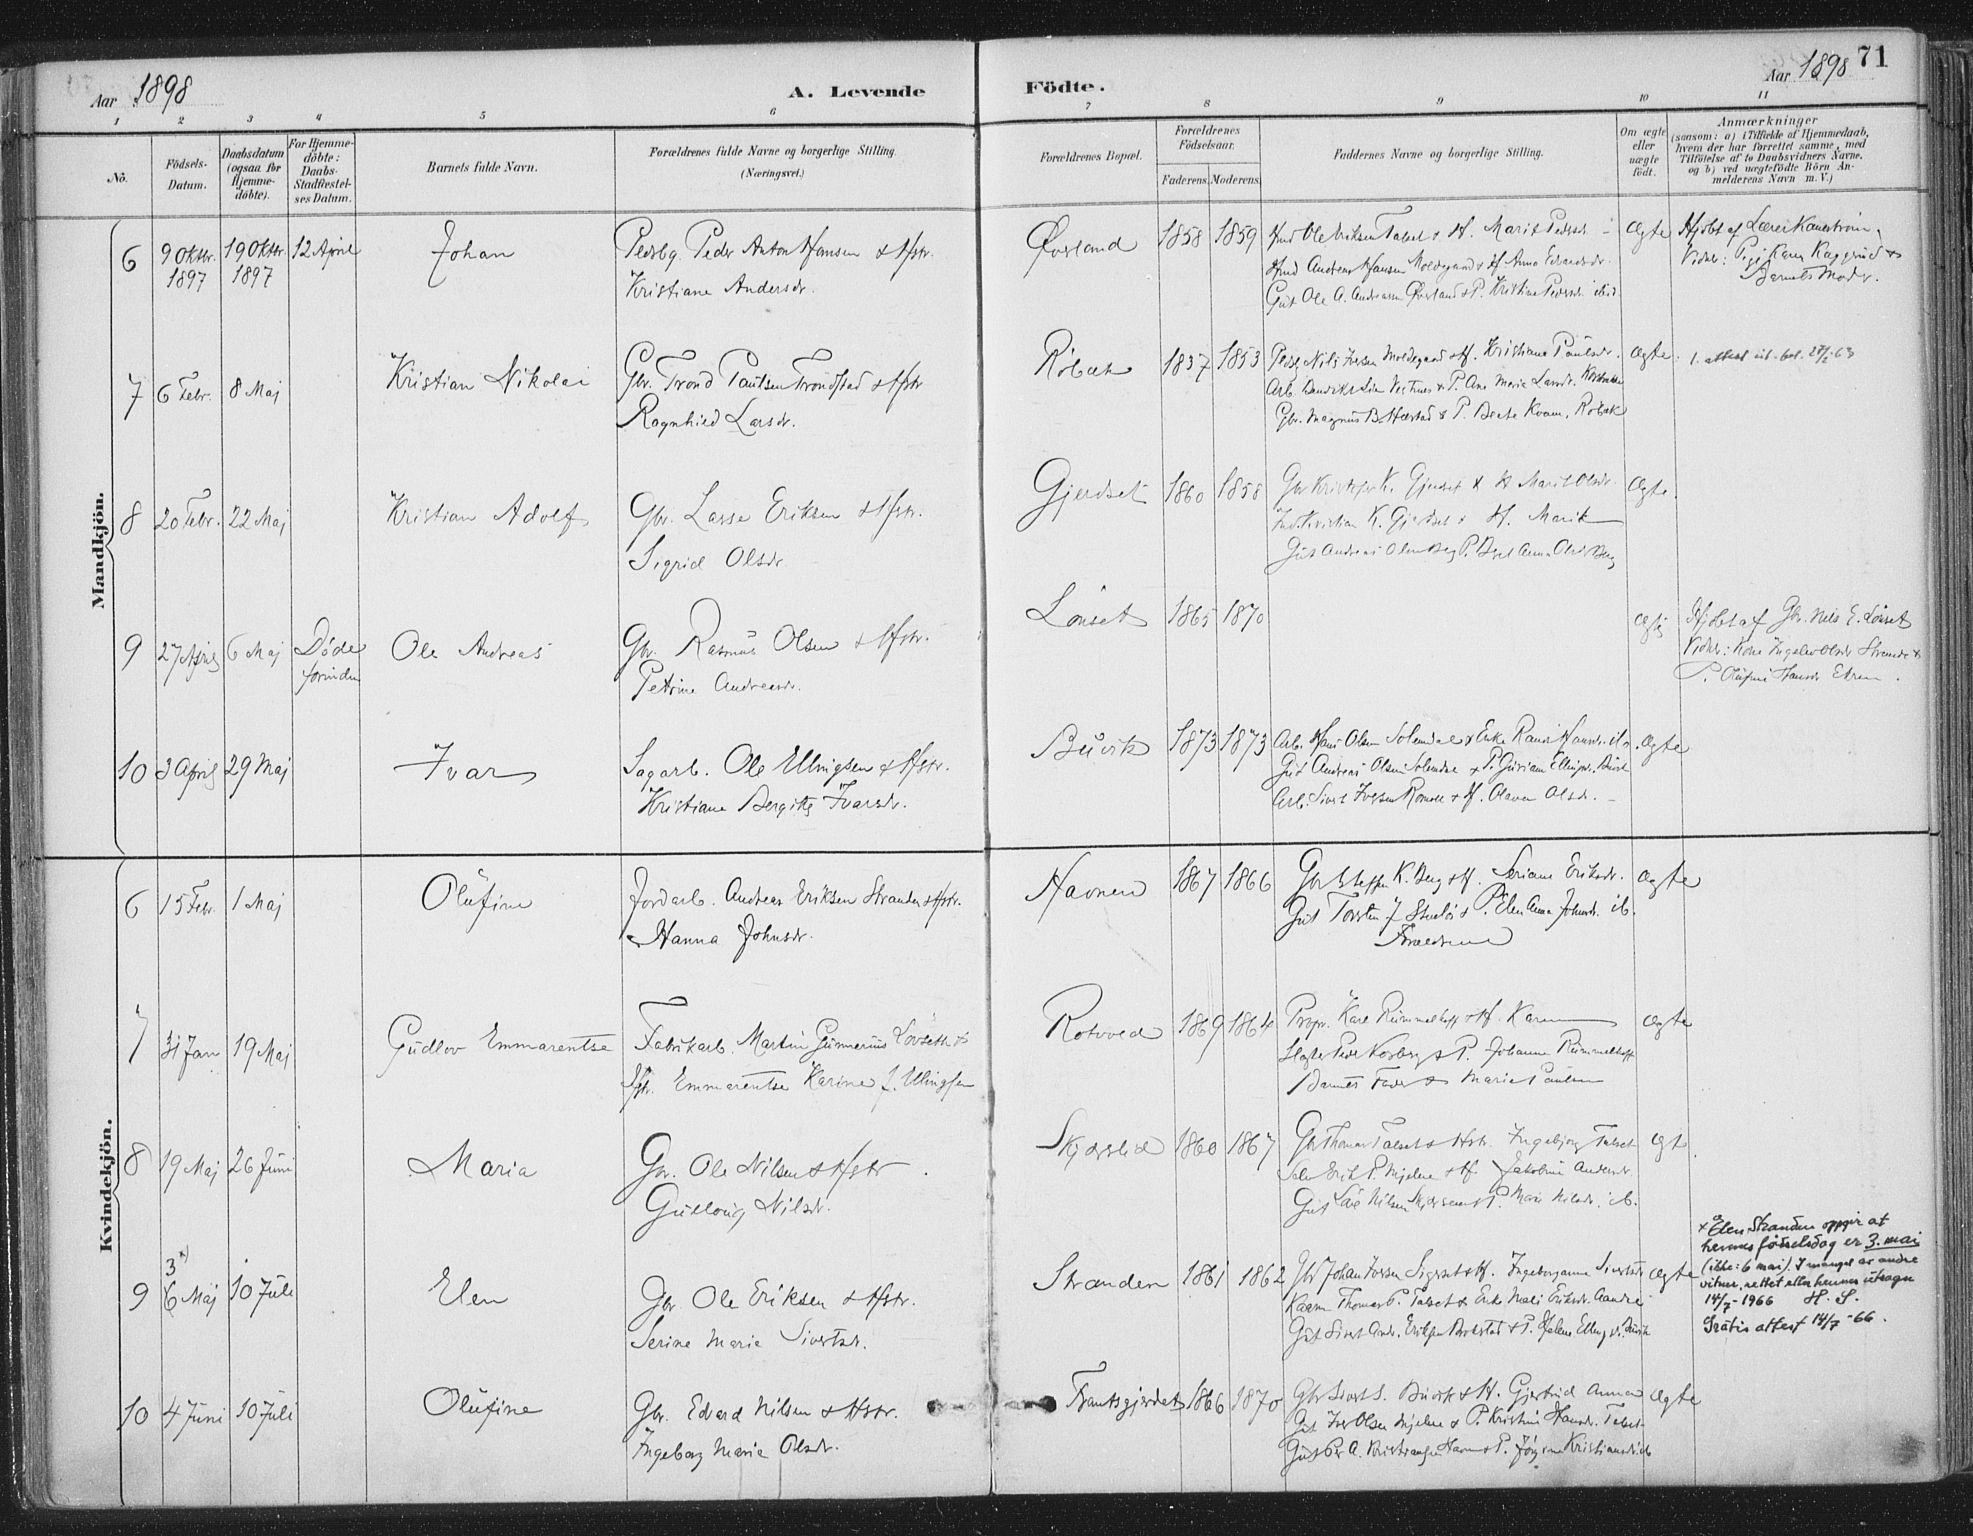 Aar 1898
A. Levende
Födte.
Aar 1898 71
1 2 3 4 5 6 7 8 9 10 11
No.
Födsels-Datum.
Daabsdatum (ogsaa for Hjemme-döbte).
For Hjemme-döbte: Daabs-Stadfæstel-ses Datum.
Barnets fulde Navn.
Forældrenes fulde Navne og borgerlige Stilling (Næringsvei.)
Forældrenes Bopæl.
Forældrenes Födselsaar.
Faderens. Moderens.
Faddernes Navne og borgerlige Stilling.
Om ægte eller uægte födt.
Anmærkninger
(saasom: a) i Tilfælde af Hjemmedaab, hvem der har forrettet samme, med Tilföielse af to Daabsvidners Navne, og b) ved uægtefödte Börn Anmelderens Navn m. V.)
Mandkjön.
6 9 Oktbr. 1897 19 Oktbr. 1897 12 April Johan
Peder Anton Hansen & Hstr.
Kristiane Andersdr.
Øverland 1858 1859
Marit Pedersdr.
Gut Ole A. Andreassen Øverland & P. Kristine Pedersdr. ibid.
Ægte
Hjdøbt af Lærer
Barnets Moder.
7 6 Febr. 8 Maj Kristian Nikolai
Gbr. Trond Paulsen Trondstad & Hstr
Ragnhild Larsdr.
Røbæk 1837 1853
Nils Iversen Moldegaard & H. Kristiane Paulsdr.
& P. Ane Marie Larsdr.
Gbr. Magnus B. & P. Beate Kvam, Røbæk
Ægte
1. attest
8 20 Febr. 22 Maj Kristian Adolf
Gbr. Lasse Eriksen & Hstr.
Sigrid Olsdr.
Gjerdset 1860 1858
Gbr Kristofer K. Gjerdset & H. Marit Olsdr.
Kristian K. Gjerdset & H. Marit
Gut Andreas Olsen Berg P. Anna Olsdr Berg
Ægte.
9 27 April 6 Maj Døde forinden Ole Andreas
Gbr. Rasmus Olsen & Hstr.
Petrine Andreasdr.
Lønset 1865 1870
Ægte
Hjdøbt af Gbr. Nils E. Lønset
Vidner: Kone Olsdr Strande &
P. Olufine Hansdr
10 3 April 29 Maj Ivar
Sagarb. Ole Ellingsen & Hstr.
Kristiane Bergitte Ivarsdr.
Buvik 1873 1873
Arb. Hans Olsen Solemdal & Enke Randi Hansdr.
Gut Andreas Olsen Solemdal & P. Guriam Ellingsdr. Buvik
Arb. Sivert Iversen & H. Olava Olsdr.
Ægte
Kvindekjön.
6 15 Febr. 1 Maj Olufine
Jordarb. Andreas Eriksen Stranden & Hstr.
Hanna Johnsdr.
Havnen 1867 1866
Gbr Steffen K. Berg & H. Seriane Eriksdr.
Gut Torsten J. & P. Elen Anna Johnsdr. ib.
Forældrene
Ægte
7 31 Jan 19 Maj Gudlov Emmarentse
Fabrikarb. Martin Gunnerius Lovseth &
Hstr. Emmarentse Karine J. Ellingsen
Rotvold 1869 1864
Propr. Karl Rummelhoff & H. Karen
Peder & P. Johanna Rummelhoff
Barnets Fader & Marie Paulsen
Ægte
8 19 Maj 26 Juni Maria
Gbr. Ole Nilsen & Hstr.
Gulloug Nilsdr.
1860 1867
Gbr Thomas Talset & Hstr. Ingebjørg Talset
Erik P. Mjelve & H. Jakobine Andersdr
Gut Nilsen & P. Mari Nilsdr. ib.
Ægt.
9 3 x) 6 Maj 10 Juli Elen
Gbr Ole Eriksen & Hstr.
Serine Marie Sivertsdr.
Stranden 1861 1862
Gbr Johan Iversen & H. Ingeborganna Sivertsdr
Kaarm Thomas P. Talset & Enke Mali Eriksdr.
Gut Sivert Andr. Eriksen & P. Helene Buvik
Ægte
x Elen Stranden oppgir at
hennes fødselsdag er 3. mai
(ikke: 6 mai). I mangel av andre
vitner, rettet etter hennes utsagn
14/7-1966 H. S.
Gratis attest 14/7-66.
10 4 Juni 10 Juli Olufine
Gbr. Edvard Nilsen & Hstr.
Ingeborg Marie Olsdr.
Frantsgjerdet 1866 1870
Gbr Sivert S. Buvik & H. Gjertrud Anna
Gut Iver Olsen Mjelve & P. Kristine Hansdr. Talset
Gut Per A. Kristiansen & P. Kristiansdr ib
Ægte